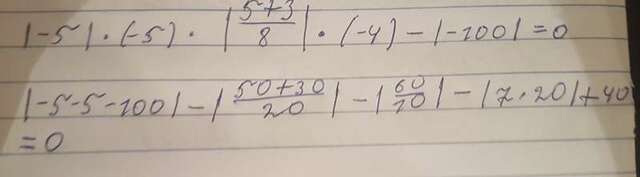 |-5|·(-5)·|5+3/8|·(-4)-|-100|=0
|-5-5-100|-|50+30/20|-|60/10|-|7·20|+40
=0